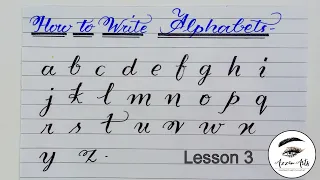 How to Write Alphabets-
a b c d e f g h i
j k l m n o p q
r s t u v w x
y z .
Lesson 3
Azzin Arts